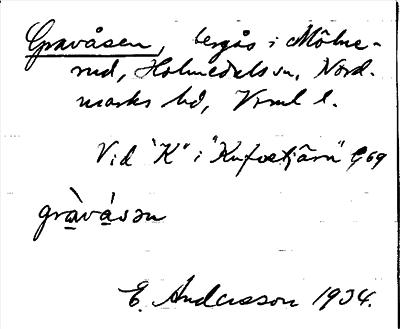 Gravåsen, bergås i Mölne-
rud, Holmedals sn, Nord-
marks hd, Vrml l.
Vid "K" i "Kufoetjärn" G69
gràvásən
E. Andersson 1934.